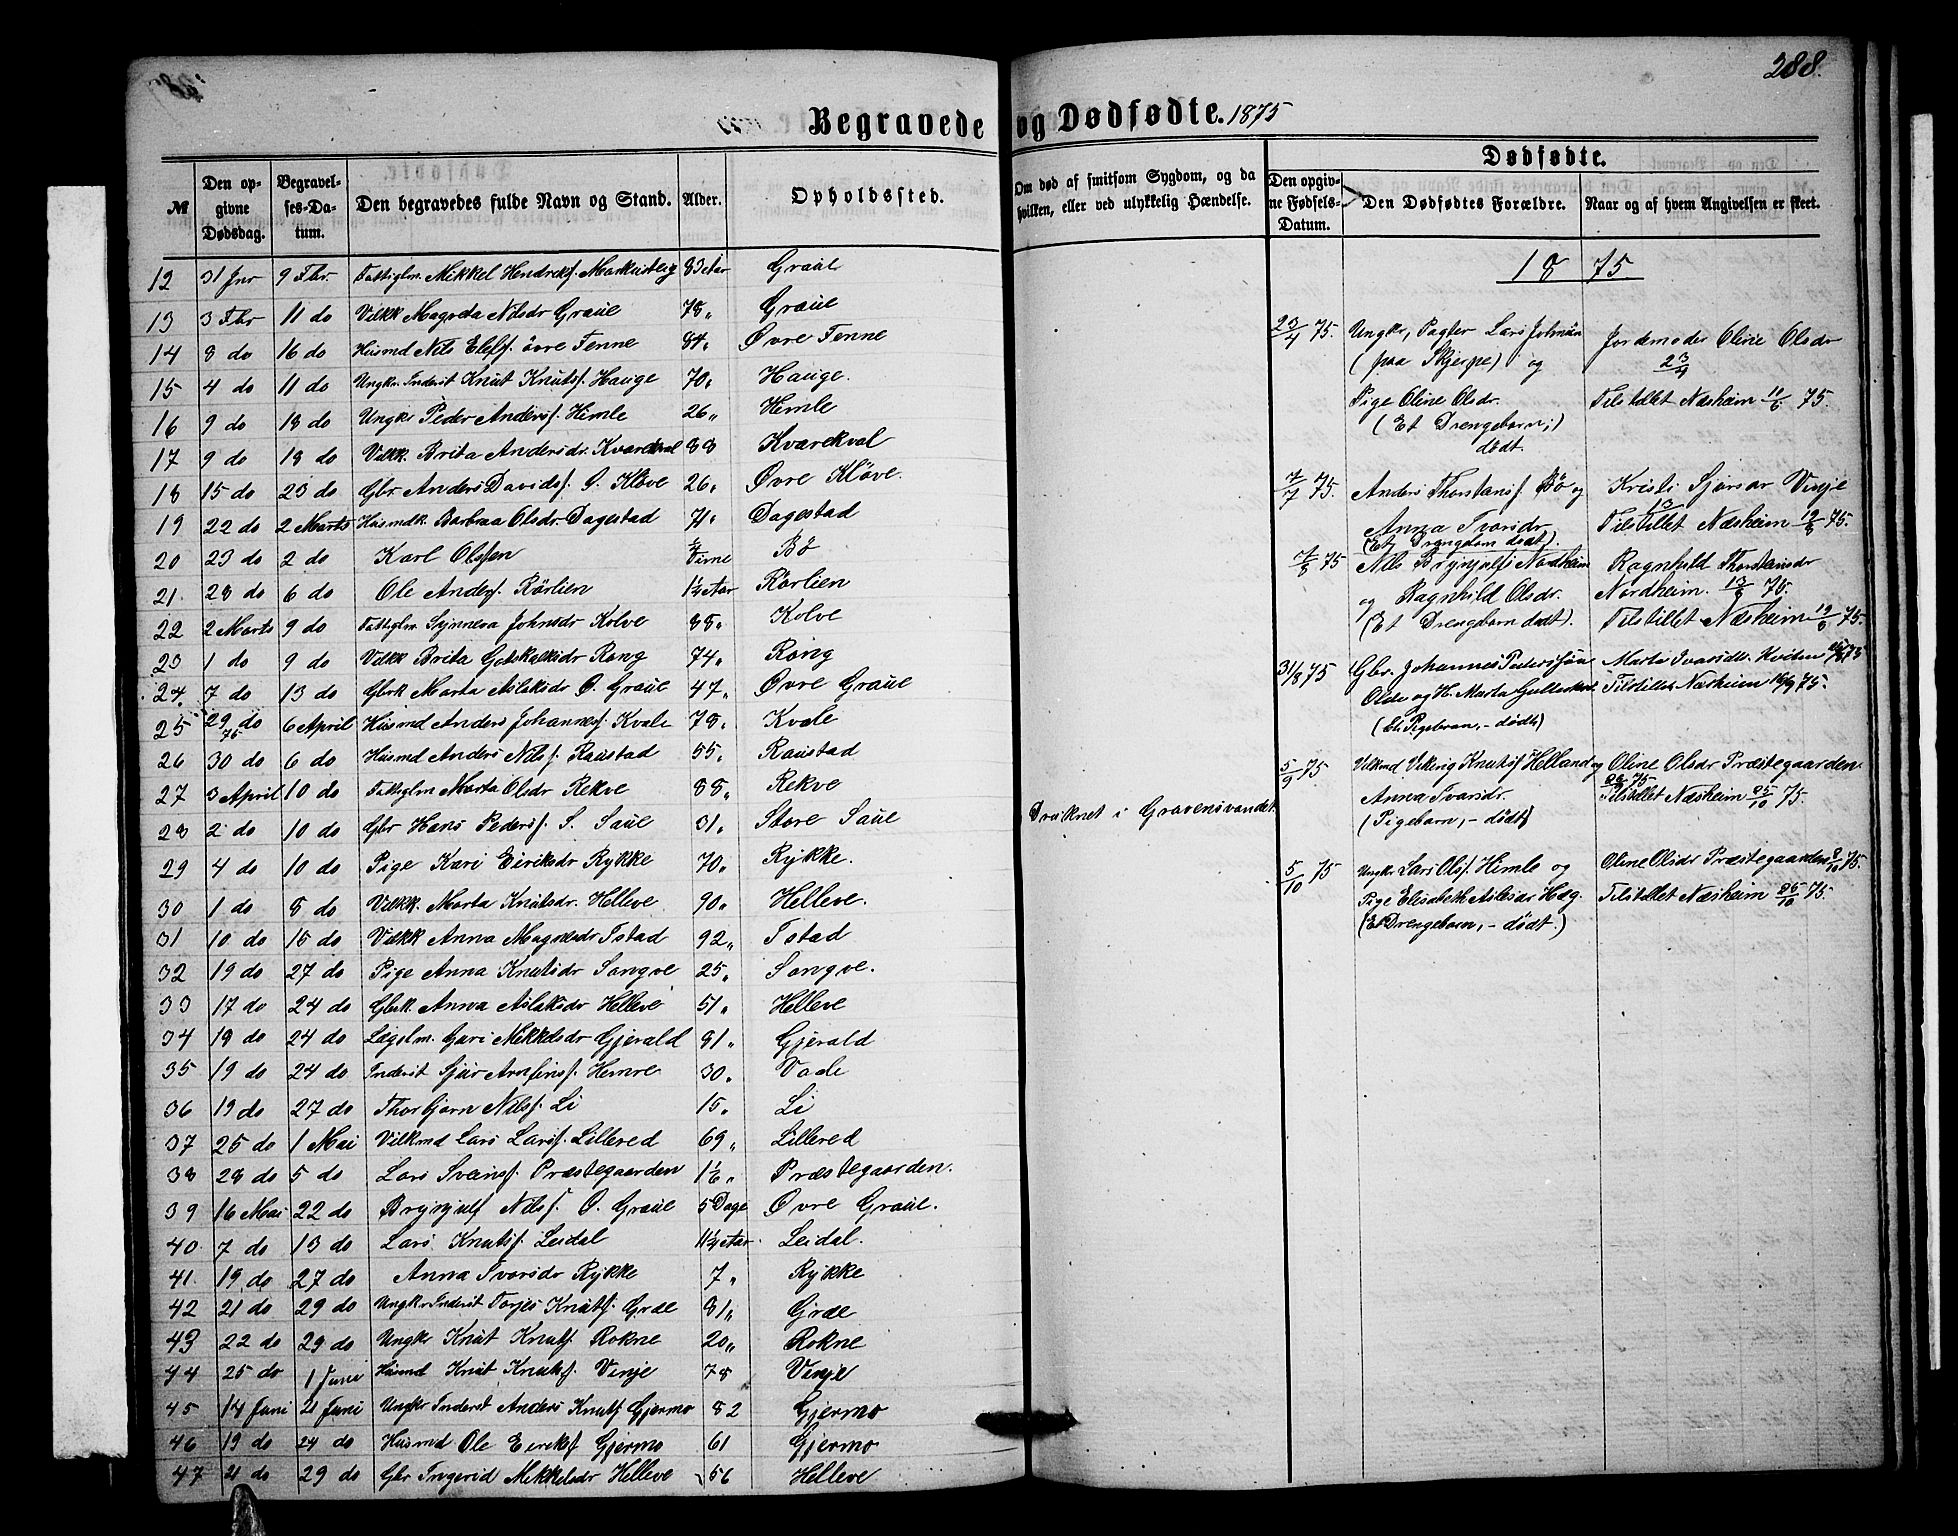 288.
Begravede og Dødfødte. 1875
№ Den opgivne Dødsdag. Begravelses-Datum. Den begravedes fulde Navn og Stand. Alder. Opholdssted. Om død af smitsom Sygdom, og da hvilken, eller ved ulykkelig Hændelse.
Dødfødte.
Den opgivne Fødsels-Datum. Den Dødfødtes Forældre. Naar og af hvem Angivelsen er skeet.
12 31 Jnr 9 Fbr. Fattiglm Mikkel Hendreksf. 83 Aar Graue
13 3 Fbr 11 do Vilkk Magreta Nilsdr Graue 78 „ Graue
14 8 do 16 do Husmd Nils Elefs. övre Fenne 84 „ Øvre Fenne
15 4 do 11 do Ungkr. Inderst Knut Knutsf. Hauge 70 „ Hauge.
16 9 do 18 do Ungkr Peder Andersf. Himle 26 „ Himle
17 9 do 18 do Vilkk. Brita Andersdr. Kvarekval 88 Kvarekval
18 15 do 23 do Gbr Anders Davidsf. Ø. Kløve 26 „ Øvre Kløve.
19 22 do 2 Marts Husmdk. Barbraa Olsdr. Dagestad 71 „ Dagestad
20 23 do 2 do Karl Olssen Time Bø
21. 28 do 6 do Ole Andersf. Rörlien 1½ Aar Rörlien
22 2 Marts 9 do Fattiglm Synneva Johnsdr Kolve 88 „ Kolve
23 1 do 9 do Vilkk Brita Gotskalksdr Rong 74 „ Rong
24. 7 do 13 do Gbrk Marta Aslaksdr Ø. Graue 47 „ Øvre Graue
25 29 do 75 6 April Husmd Anders Johannesf. Kvale 78 „ Kvale
26 30 do 6 do Husmd Anders Nilsf. Raustad 55 „ Raustad
27 3 April 10 do Fattiglm Marta Olsdr Rekve 88 „ Rekve
28 2 do 10 do Gbr Hans Pedersf. S. Saue 31 „ Store Saue Druknet i Gravensvandet
29 4 do 10 do Pige Kari Eiriksdr Rykke 70 „ Rykke.
30 1 do 8 do Vilkk. Marta Knutsdr. Helleve 90 „ Helleve.
31 10 do 15 do Vilkk Anna Magnesdr Istad 92 „ Istad
32 19 do 27 do Pige Anna Knutsdr Songve 25 „ Songve.
33 17 do 24 do Gbrk. Anna Aslaksdr Helleve 51 „ Helleve
34 18 do 24 do Lægslm. Guri Mikkelsdr Gjerald 91 „ Gjerald
35 19 do 24 do Inderst Sjur Arnfinsf. Hemre 30 „
36 19 do 27 do Thorbjørn Nilsf. Li 15 „ Li
37 25 do 1 Mai Vilkmd Lars Larsf. Lillered 69 „ Lillered
38 28 do 5 do Lars Sveinsf. Præstegaarden 1 1/6 „ Præstegaarden.
39 16 Mai 22 do Brynjulf Nilsf. Ø. Graue 5 Dage Øvre Graue.
40. 7 do 13 do Lars Knutsf. Leidal 1¼ Aar. Leidal.
41. 19 do 27 do Anna Ivarsdr Rykke 7 „ Rykke
42 21 do 29 do Ungkr Inderst Torjes Knutsf. Græe 81 „ Græe
43 22 do 29 do Ungkr Knut Knutsf Rokne 20 „ Rokne
44 25 do 1 Juni Husmd Knut Knutsf. Vinje 78 Vinje
45 14 Juni 21 Juni Ungkr Inderst Anders Knutsf Gjermo 82 Gjermo
46 19 do 24 do Husmd Ole Eiriksf Gjermo 61 Gjermo
47 21 do 29 do Gbr Ingerid Mikkelsdr Helleve 56 Helleve
1875.
23/4 75. Ungkr, Pagter Lars Johnsen Jordemoder Oline Olsdr
(paa Skjerpe) og 23/4
Pige Oline Olsdr. Tilstillet Næsheim 11/6 75.
(Et Drengebarn;)
dødt.
7/7 75. Anders Thorstensf Bø og Kristi Sjursdr Vinje
Anna Ivarsdr Tilstillet Næsheim 19/8 75.
(Et Drengebarn dødt).
7/8 75 Nils Brynjulfs Nordheim Ragnhild Thorsteinsdr
og Ragnhild Olsdr. Nordheim. 13/8 75.
(Et Drengebarn dødt). Tilstillet Næsheim 19/8 75.
31/8 75 Gbr. Johannes Pedersson Marta Ivarsdr. Hviten
Olde og H. Marta Tilstillet Næsheim 16/9 75.
(Et Pigebarn, - dødt)
5/9 75 Vilkmd Viking Knutsf Helland og Oline Olsdr Præstegaarden
Anna Ivarsdr. Tilstillet Næsheim 25/10 75.
(Pigebarn, - dødt)
5/10 75 Ungkr Lars Olsf. Himle og Oline Olsdr Præstegaarden 8/10 75.
Pige Elisabeth Aslesdr Hæg. Tilstillet Næsheim 25/10 75.
(Et Drengebarn, - dødt.)